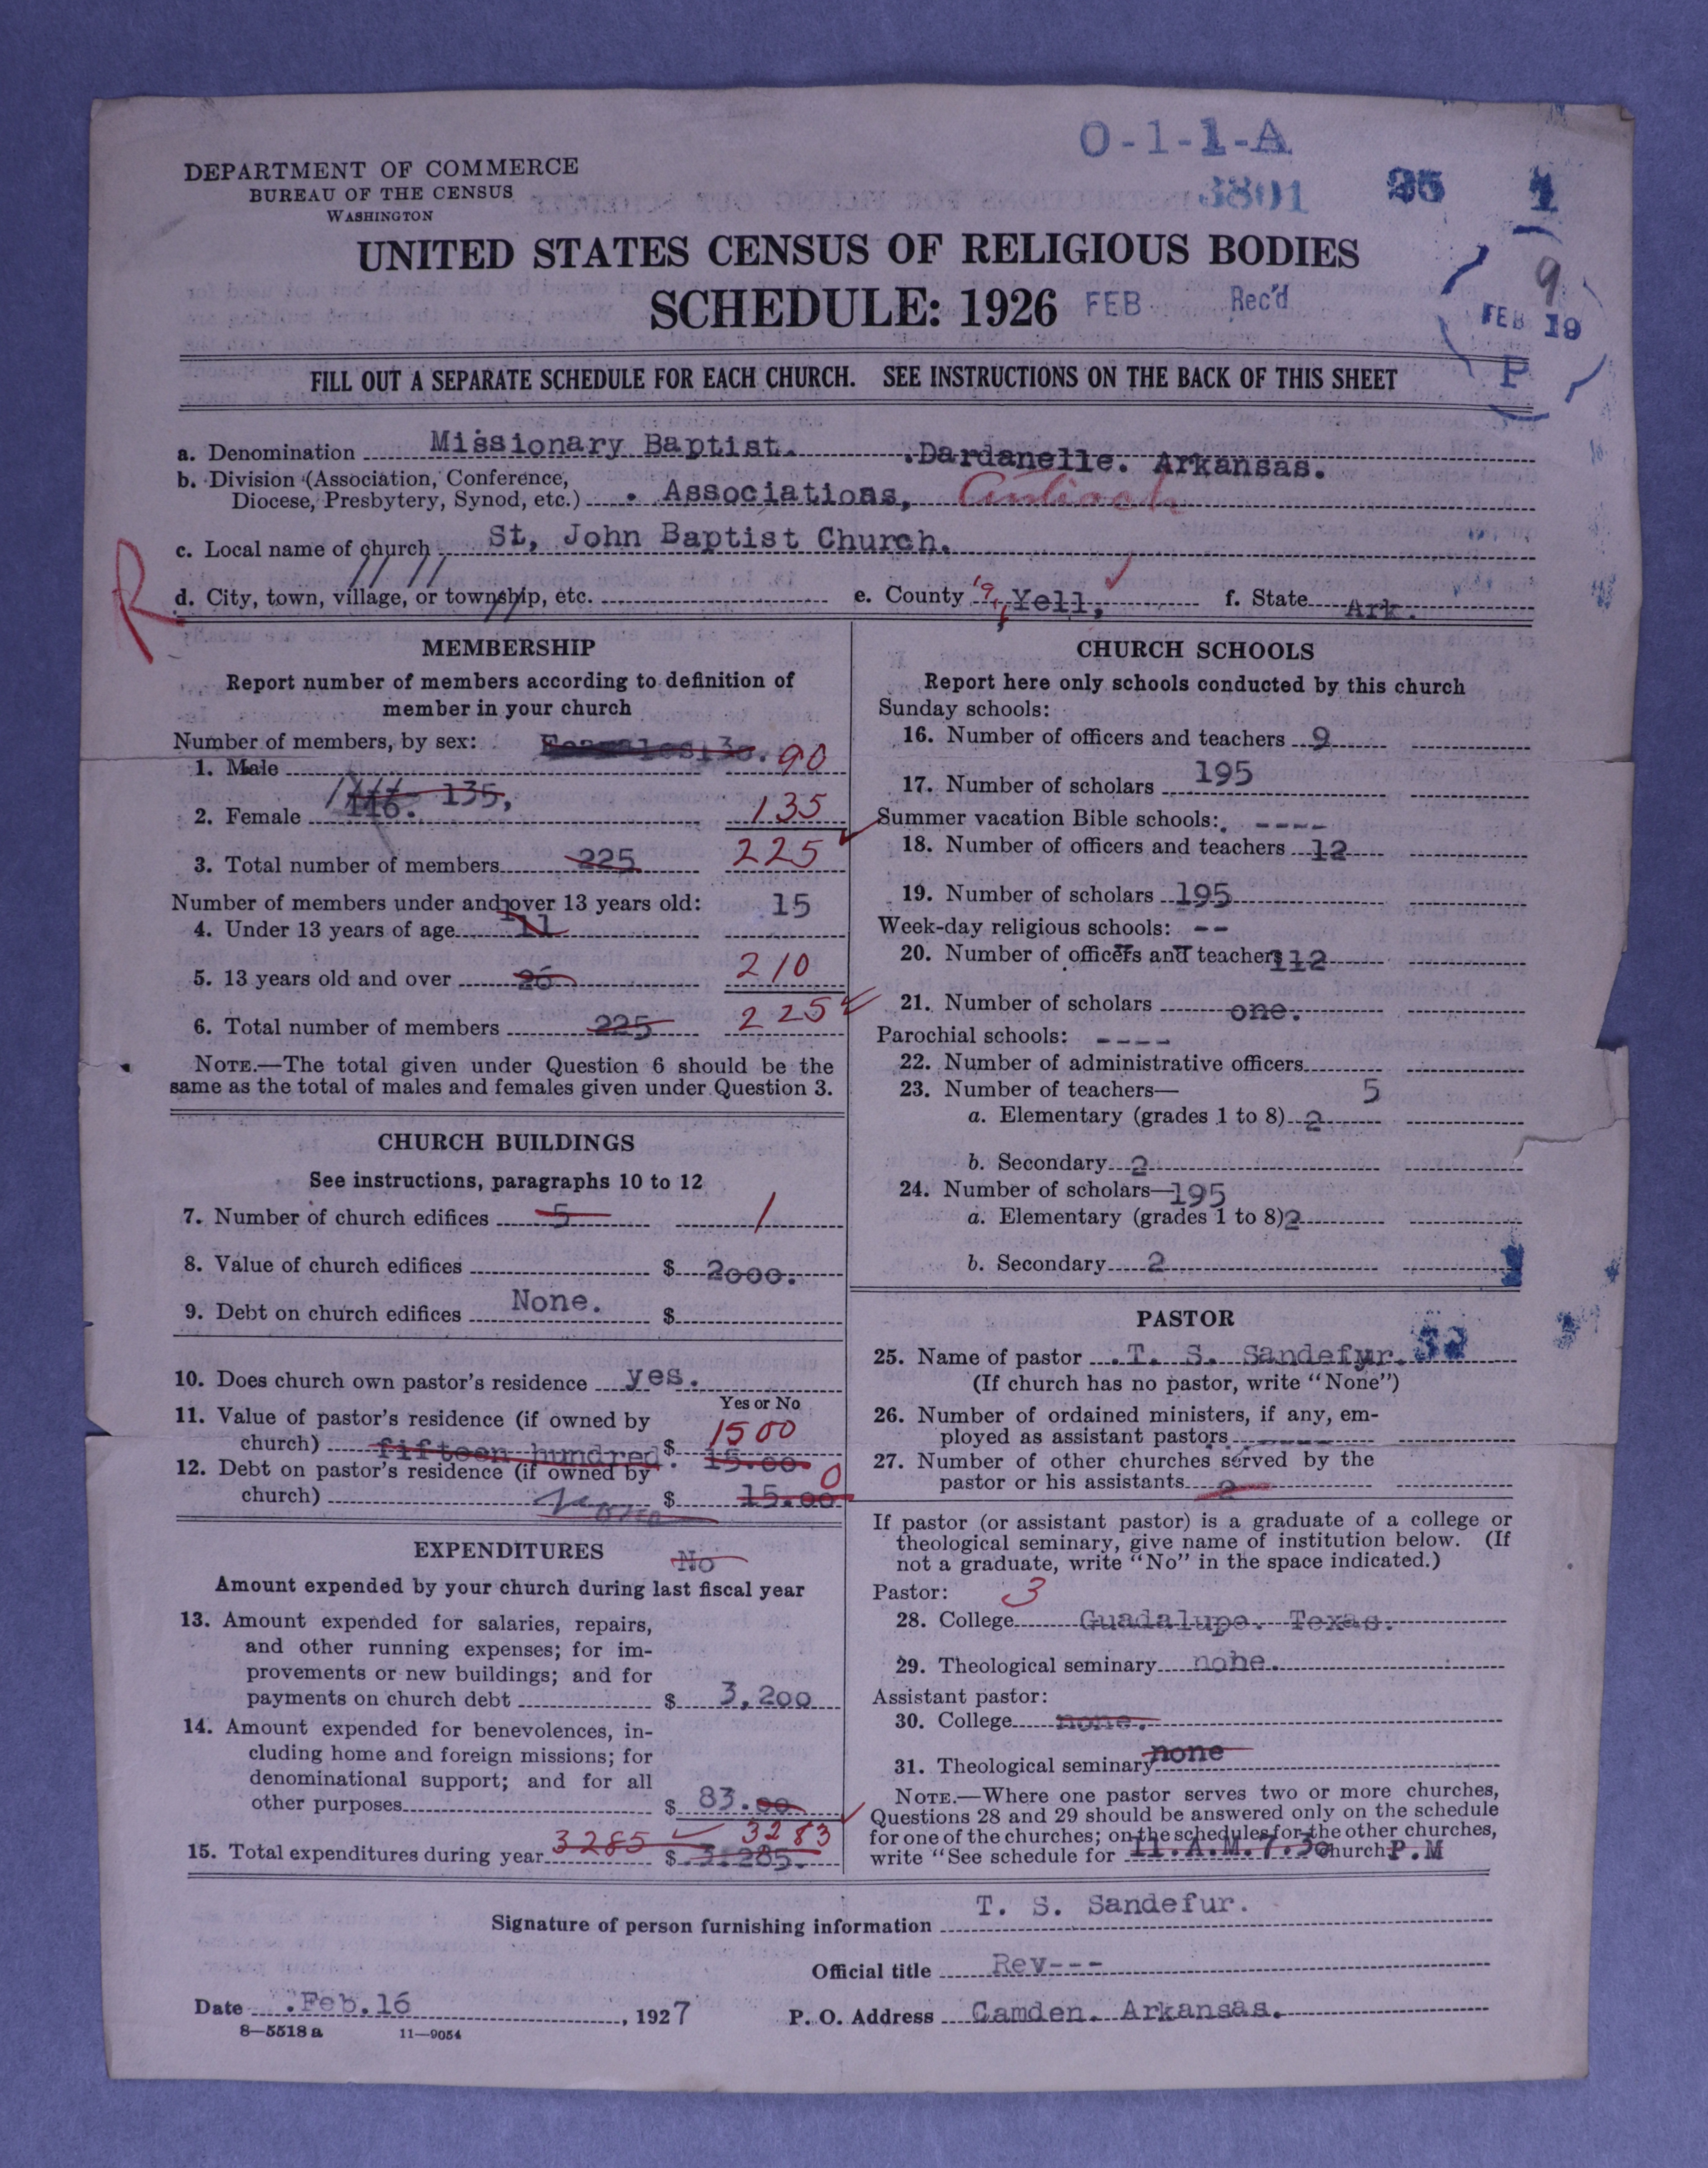 O-1-1-A
DEPARTMENT OF COMMERCE
BUREAU OF THE CENSUS
WASHINGTON
3801
UNITED STATES CENSUS OF RELIGIOUS BODIES
SCHEDULE: 1926 FEB Rec'd
9
FEB 19
P
FILL OUT A SEPARATE SCHEDULE FOR EACH CHURCH. SEE INSTRUCTIONS ON THE BACK OF THIS SHEET
a. Denomination Missionary Baptist. .Dardanelle. Arkansas.
b. Division (Association, Conference,
Diocese, Presbytery, Synod, etc.) . Associations, Antioch
c. Local name of church St, John Baptist Church.
R
d. City, town, village, or township, etc. e. County Yell, f. State Ark.
MEMBERSHIP
Report number of members according to definition of
member in your church
Number of members, by sex:
1. Male 90
2. Female 116. 135, 135
3. Total number of members 225 225
Number of members under and over 13 years old: 15
4. Under 13 years of age 11
5. 13 years old and over 26 210
6. Total number of members 225 225
NOTE.—The total given under Question 6 should be the
same as the total of males and females given under Question 3.
CHURCH BUILDINGS
See instructions, paragraphs 10 to 12
7. Number of church edifices 5 1
8. Value of church edifices $ 2000.
9. Debt on church edifices None. $
10. Does church own pastor's residence yes.
Yes or No
11. Value of pastor's residence (if owned by
church) fifteen hundred. $ 15.00. 1500
12. Debt on pastor's residence (if owned by
church) $ 15.00 0
EXPENDITURES No
Amount expended by your church during last fiscal year
13. Amount expended for salaries, repairs,
and other running expenses; for im-
provements or new buildings; and for
payments on church debt $ 3,200
14. Amount expended for benevolences, in-
cluding home and foreign missions; for
denominational support; and for all
other purposes $ 83.00
15. Total expenditures during year 3285 $ 3.285. 3283
CHURCH SCHOOLS
Report here only schools conducted by this church
Sunday schools:
16. Number of officers and teachers 9
17. Number of scholars 195
Summer vacation Bible schools: ----
18. Number of officers and teachers 12
19. Number of scholars 195
Week-day religious schools: --
20. Number of officers and teachers 112
21. Number of scholars one.
Parochial schools: ----
22. Number of administrative officers
23. Number of teachers— 5
a. Elementary (grades 1 to 8) 2
b. Secondary 2
24. Number of scholars— 195
a. Elementary (grades 1 to 8) 2
b. Secondary 2
PASTOR
25. Name of pastor .T. S. Sandefur.
(If church has no pastor, write "None")
26. Number of ordained ministers, if any, em-
ployed as assistant pastors ----
27. Number of other churches served by the
pastor or his assistants 2
If pastor (or assistant pastor) is a graduate of a college or
theological seminary, give name of institution below. (If
not a graduate, write "No" in the space indicated.)
Pastor: 3
28. College Guadalupe. Texas.
29. Theological seminary none.
Assistant pastor:
30. College none.
31. Theological seminary none
NOTE.—Where one pastor serves two or more churches,
Questions 28 and 29 should be answered only on the schedule
for one of the churches; on the schedules for the other churches,
write "See schedule for 11.A.M. 7.30 church P.M
Signature of person furnishing information T. S. Sandefur.
Official title Rev---
Date .Feb.16, 1927 P. O. Address Camden. Arkansas.
8—5518 a 11—9054